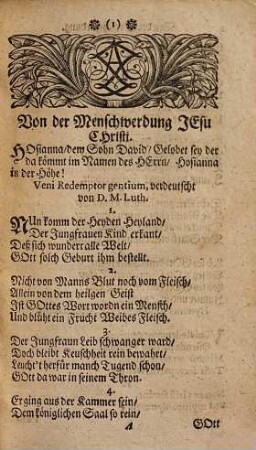 (1)
Von der Menschwerdung JEsu
CHristi.
HOsianna/dem Sohn David/ Gelobet sey der
da kömmt im Namen des HErrn/ Hosianna
in der Höhe!
Veni Redemptor gentium, verdeutscht
von D. M. Luth.
1.
NUn komm der Heyden Heyland/
Der Jungfrauen Kind erkant/
Deß sich wundert alle Welt/
GOtt solch Geburt ihm bestellt.
2.
Nicht von Manns Blut noch vom Fleisch/
Allein von dem heilgen Geist
Ist GOttes Wort worden ein Mensch/
Und blüht ein Frucht Weibes Fleisch.
3.
Der Jungfraun Leib schwanger ward/
Doch bleibt Keuschheit rein bewahrt/
Leucht't herfür manch Tugend schon/
GOtt da war in seinem Thron.
4.
Er ging aus der Kammer sein/
Dem königlichen Saal so rein/
A GOtt